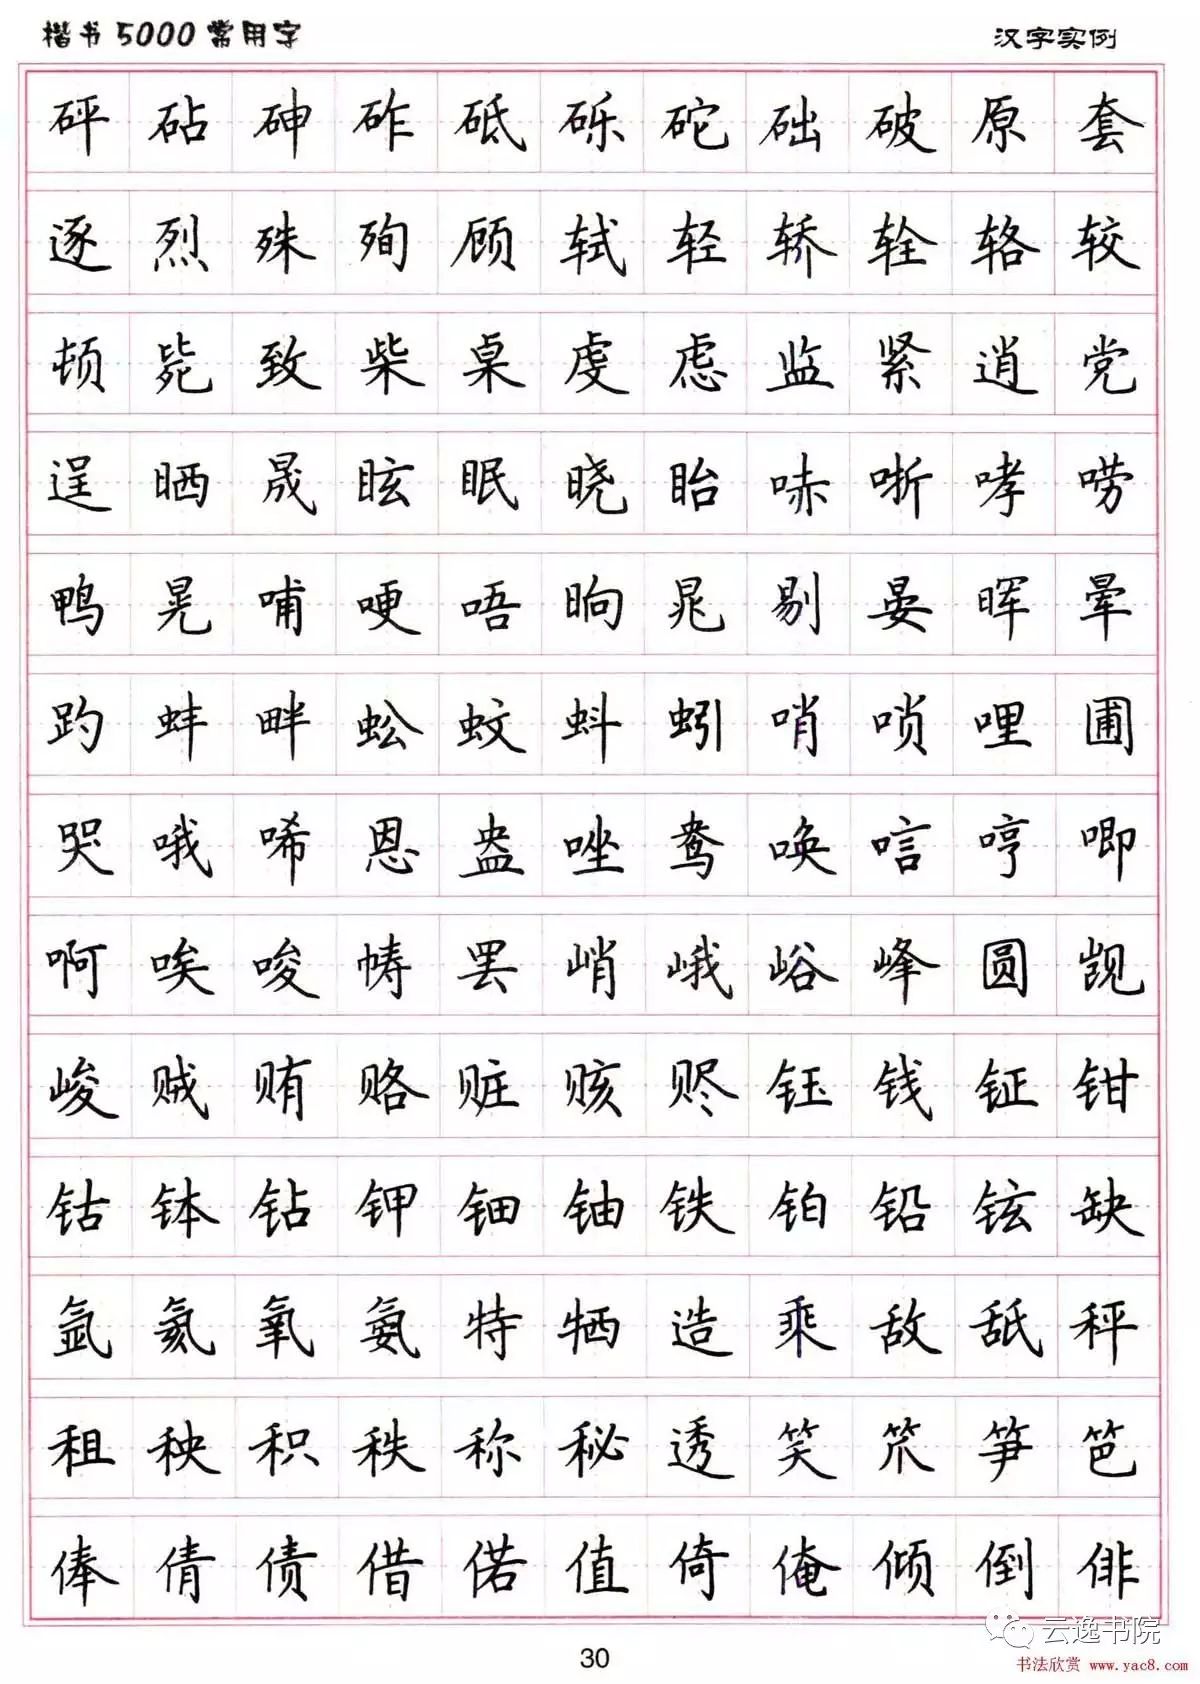 楷书5000常用字 汉字实例
砰 砧 砷 砟 砥 砾 砣 础 破 原 套
逐 烈 殊 殉 顾 轼 轻 轿 辁 辂 较
顿 毙 致 柴 桌 虔 虑 监 紧 逍 党
逞 晒 晟 眩 眠 晓 眙 哧 哳 哮 唠
鸭 晃 哺 哽 唔 晌 晁 剔 晏 晖 晕
趵 蚌 畔 蚣 蚊 蚪 蚓 哨 唢 哩 圃
哭 哦 唏 恩 盎 唑 鸯 唤 唁 哼 唧
啊 唉 唆 帱 罢 峭 峨 峪 峰 圆 觊
峻 贼 贿 赂 赃 赅 赆 钰 钱 钲 钳
钴 钵 钻 钾 钿 铀 铁 铂 铅 铉 缺
氩 氦 氧 氨 特 牺 造 乘 敌 舐 秤
租 秧 积 秩 称 秘 透 笑 笊 笋 笆
俸 倩 债 借 偌 值 倚 俺 倾 倒 俳
30
云逸书院
书法欣赏 www.yac8.com